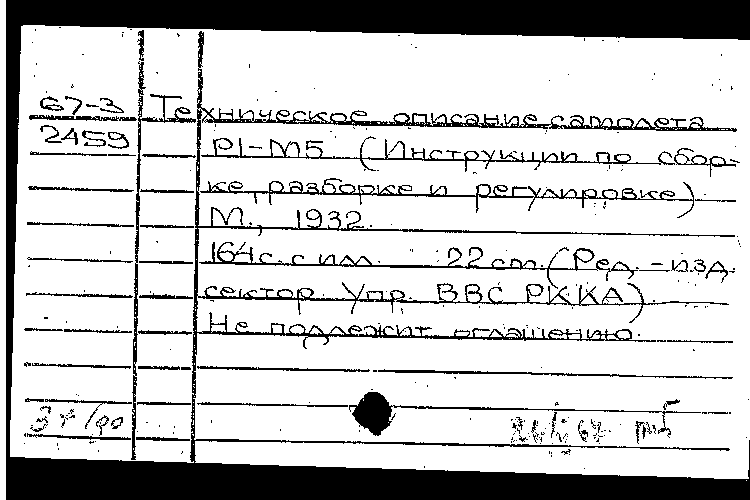 67-3 Техническое описание самолета
2459 Р1-М5 (Инструкции по сбор-
ке, разборке и регулировке)
М., 1932.
164с. с илл. 22 cm. (Ред.-изд.
сектор Упр. ВВС РККА).
Не подлежит оглашению.